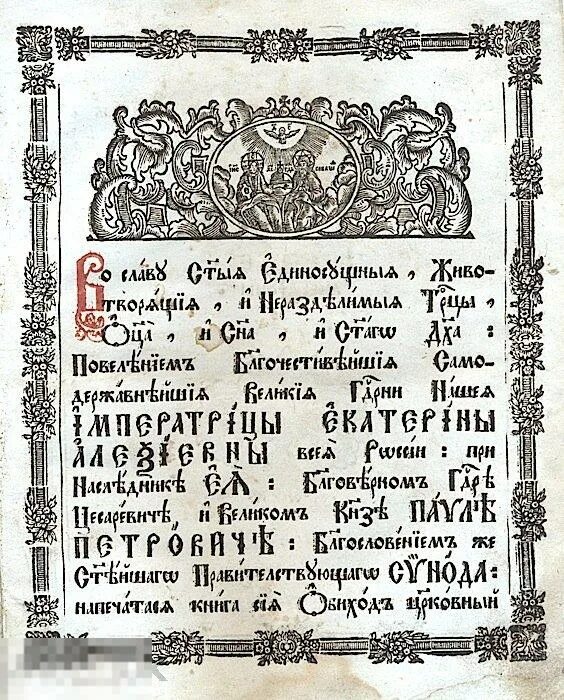 Во славу Ст҃ы́ѧ Є҆диносꙋ́щныѧ , Живо-
творѧ́щїѧ , и҆ Нераздѣли́мыѧ Трⷪ҇цы ,
Ѻ҆ц҃а̀ , и҆ Сн҃а , и҆ Ст҃а́гѡ Дх҃а :
Повелѣ́нїемъ Бл҃гочести́вѣйшїѧ Само-
держа́внѣйшїѧ Вели́кїѧ Гдⷭ҇рни На́шеѧ
І҆МПЕРАТРІ́ЦЫ Є҆КАТЕРІ́НЫ
А҆ЛЕѮІ́ЕВНЫ всеѧ̀ Рѡссі́и : при
Наслѣ́дникѣ Є҆Ѧ̀ : Бл҃говѣ́рномъ Гдⷭ҇рѣ
Цесаре́вичѣ , и҆ Вели́комъ Кн҃зѣ ПА́ѴЛѢ
ПЕТРО́ВИЧѢ : Бл҃гослове́нїемъ же
Ст҃ѣ́йшагѡ Прави́телствꙋющагѡ СѴНО́ДА :
напеча́тасѧ кни́га сїѧ̀ Ѻ҆бихо́дъ цр҃ко́вный